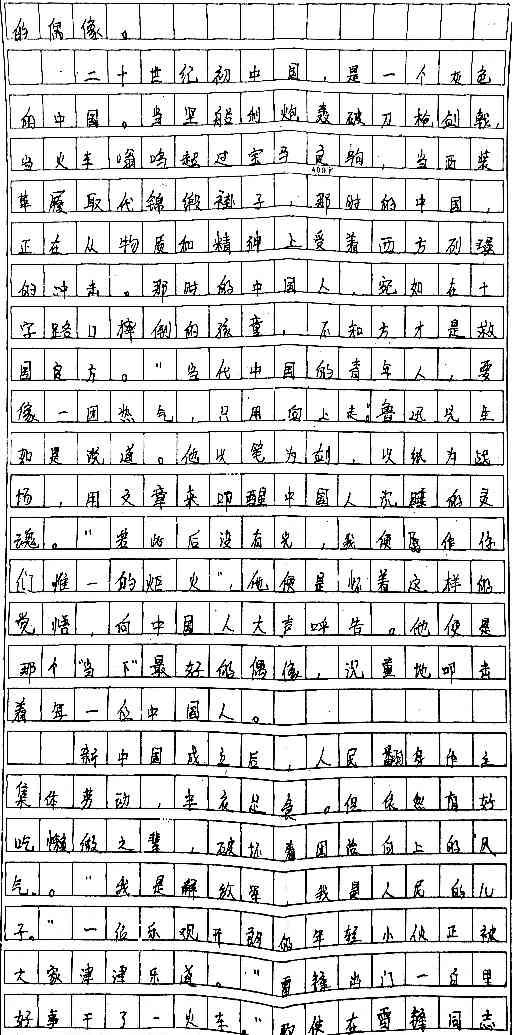 的偶像。
二十世纪初中国，是一个灰色
的中国。当坚船利炮轰破刀枪剑戟，
当火车嗡鸣超过宝马良驹，当西装
400字
革履取代锦缎褂子，那时的中国，
正在从物质和精神上受着西方列强
的冲击。那时的中国人，宛如在十
字路口摔倒的孩童，不知方才是救
国良方。“当代中国的青年人，要
像一团热气，只用向上走。”鲁迅先生
如是说道。他以笔为剑，以纸为战
场，用文章来叩醒中国人沉睡的灵
魂。“若此后没有光，我便愿作你
们惟一的炬火”，他便是怀着这样的
觉悟，向中国人大声呼告。他便是
那个“当下”最好的偶像，沉重地叩击
着每一位中国人。
新中国成立后，人民翻身作主
集体劳动，丰衣足食。但依然有好
吃懒做之辈，破坏着国治向上的风
气。“我是解放军，我是人民的儿
子。”一位乐观开朗的年轻小伙正被
大家津津乐道。“雷锋出门一百里
好事干了一火车。”即使在雷锋同志